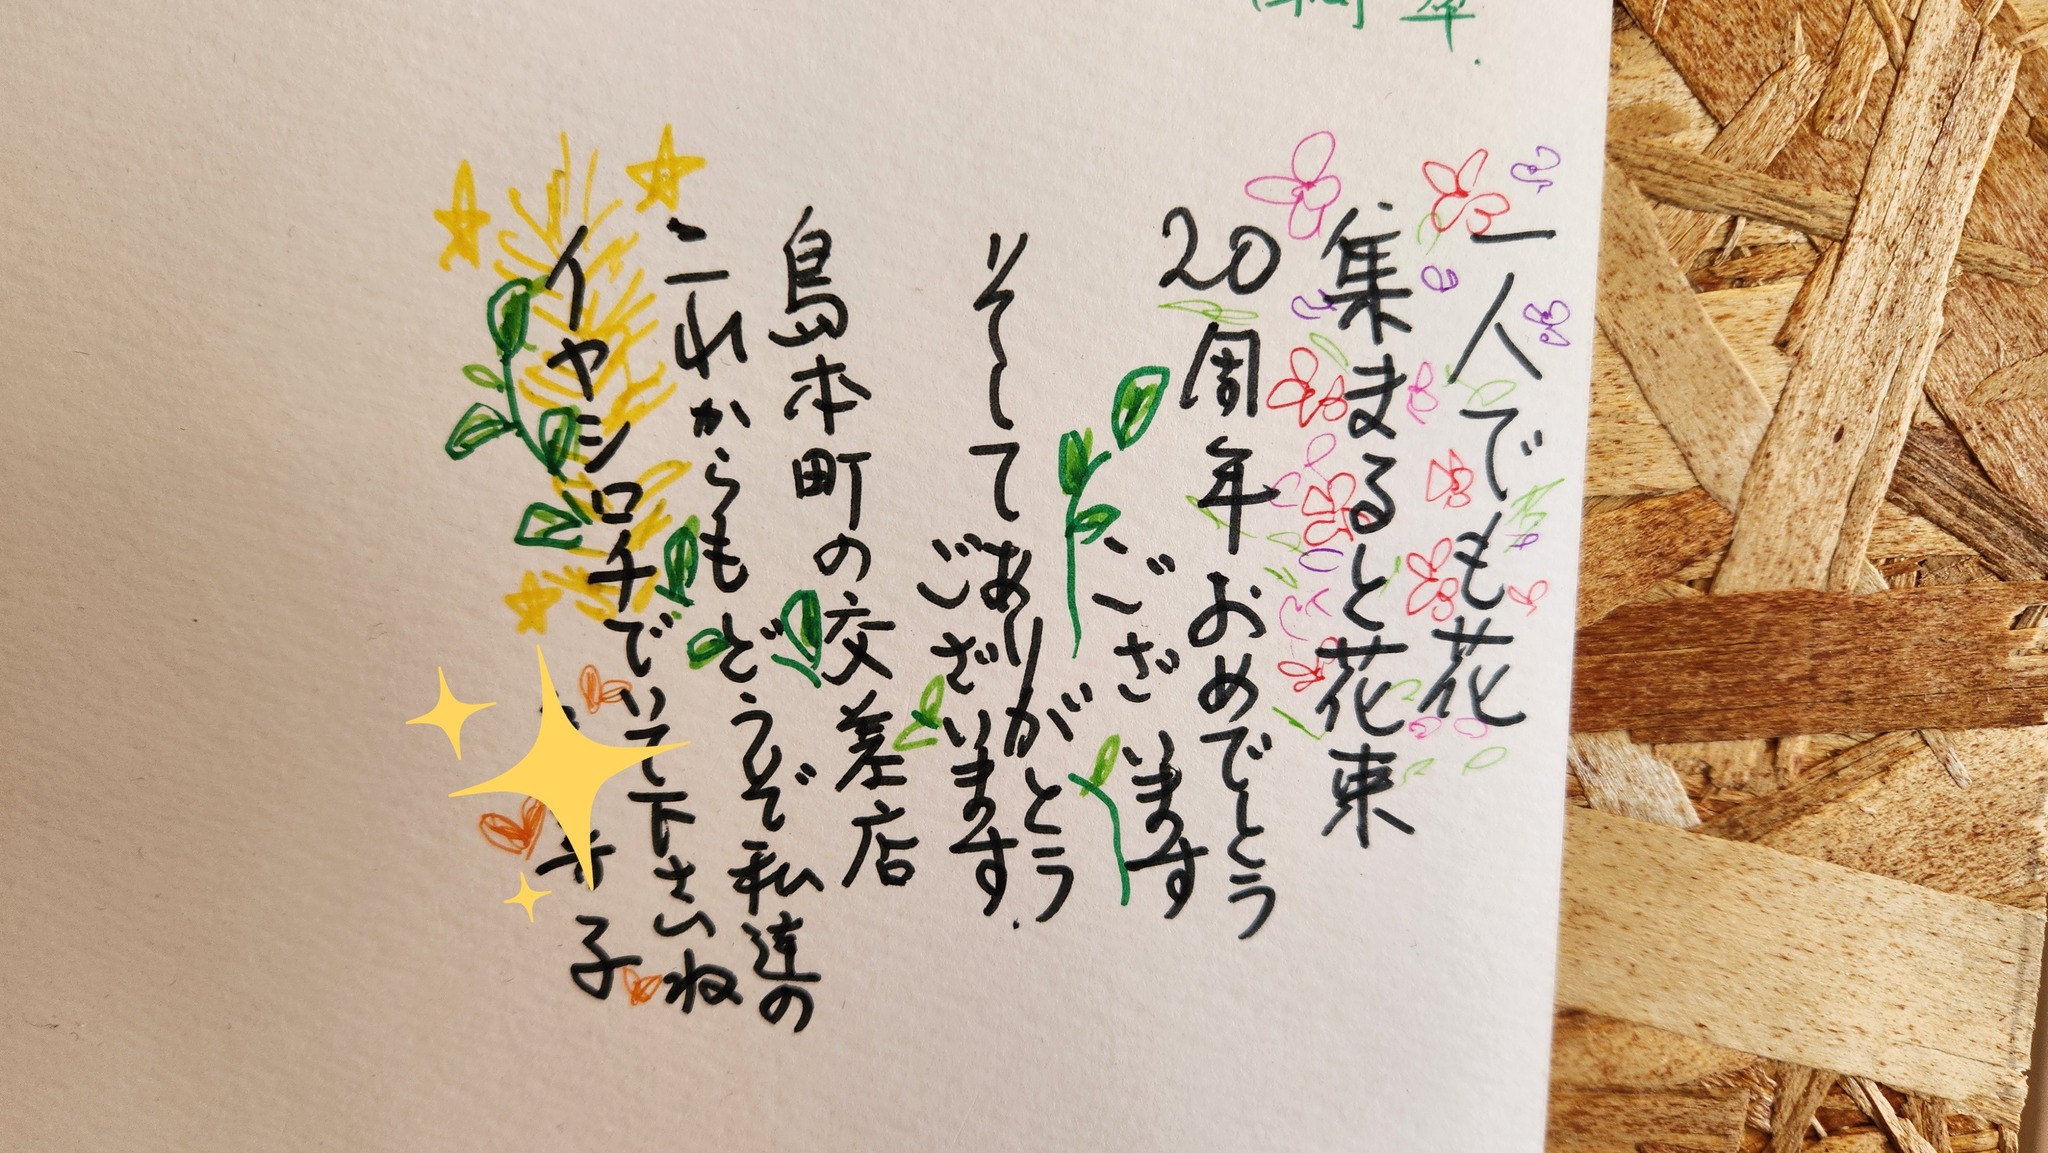 一人でも花
集まると花束
20周年おめでとう
ございます
そして ありがとう
ございます.
島本町の交差店
これからもどうぞ私達の
イヤシロチでいて下さいね
子